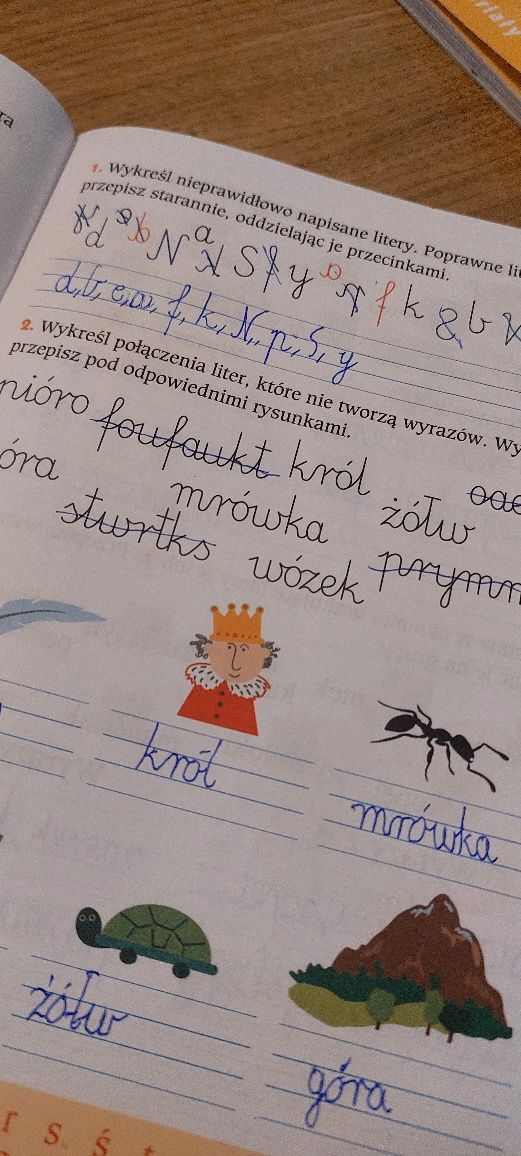 riały
ra
1. Wykreśl nieprawidłowo napisane litery. Poprawne lit
przepisz starannie, oddzielając je przecinkami.
d b N a S y f k b
d, b, e, a, f, k, N, p, S, y
2. Wykreśl połączenia liter, które nie tworzą wyrazów. Wy
przepisz pod odpowiednimi rysunkami.
nióro foufaukt król oae
óra mrówka żółw
stwrtks wózek prymr
król mrówka
żółw góra
r s ś t